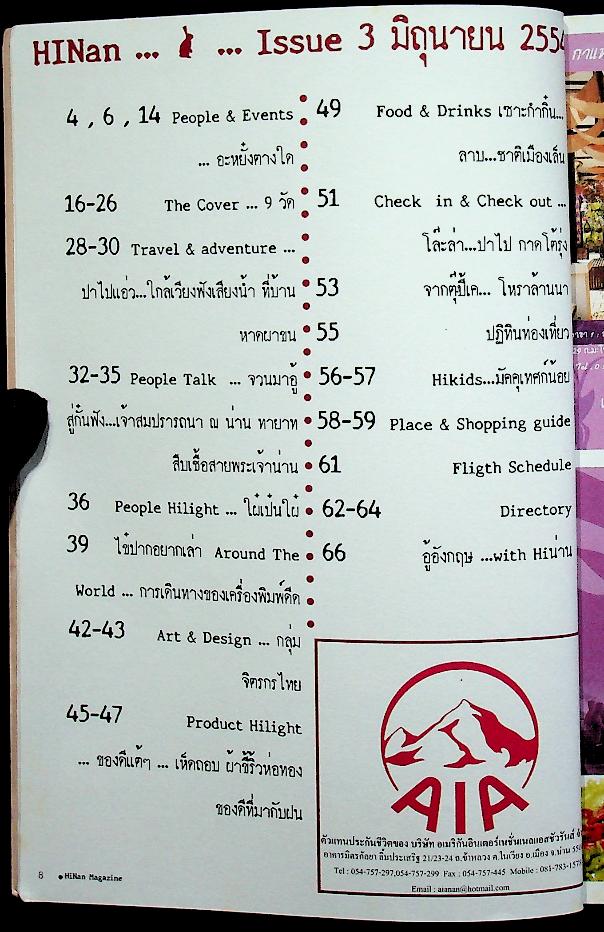 HINan ... ... Issue 3 มิถุนายน 2554
4 , 6 , 14 People & Events
... อะหยั๋งตางใด
16-26 The Cover ... 9 วัด
28-30 Travel & adventure ...
ปาไปแอ่ว...ใกล้เวียงฟังเสียงน้ำ ที่บ้าน
หาดผาขน
32-35 People Talk ... จวนมาอู้
สู่กั๋นฟัง...เจ้าสมปรารถนา ณ น่าน ทายาท
สืบเชื้อสายพระเจ้าน่าน
36 People Hilight ... ใผ๋เป๋นใผ๋
39 ไข๋ปากอยากเล่า Around The
World ... การเดินทางของเครื่องพิมพ์ดีด
42-43 Art & Design ... กลุ่ม
จิตรกรไทย
45-47 Product Hilight
... ของดีแต๊ๆ ... เห็ดถอบ ผ้าขี้ริ้วห่อทอง
ของดีที่มากับฝน
49 Food & Drinks เซาะกำกิ๋น...
ลาบ...ชาติเมืองเล็น
51 Check in & Check out ...
โล๊ะล่า...ปาไป กาดโต้รุ่ง
53 จากตุ๊ปี้เค... โหราล้านนา
55 ปฏิทินท่องเที่ยว
56-57 Hikids...มัคคุเทศก์น้อย
58-59 Place & Shopping guide
61 Fligth Schedule
62-64 Directory
66 อู้อังกฤษ ...with Hiน่าน
AIA
ตัวแทนประกันชีวิตของ บริษัท อเมริกันอินเตอร์เนชั่นแนลแอสชัวรันส์
อาคารมิตรกัลยา ลิ้มประเสริฐ 21/23-24 ถ.ข้าหลวง ต.ในเวียง อ.เมือง จ.น่าน
Tel : 054-757-297,054-757-299 Fax : 054-757-445 Mobile : 081-783-1578
Email : aianan@hotmail.com
8 HiNan Magazine